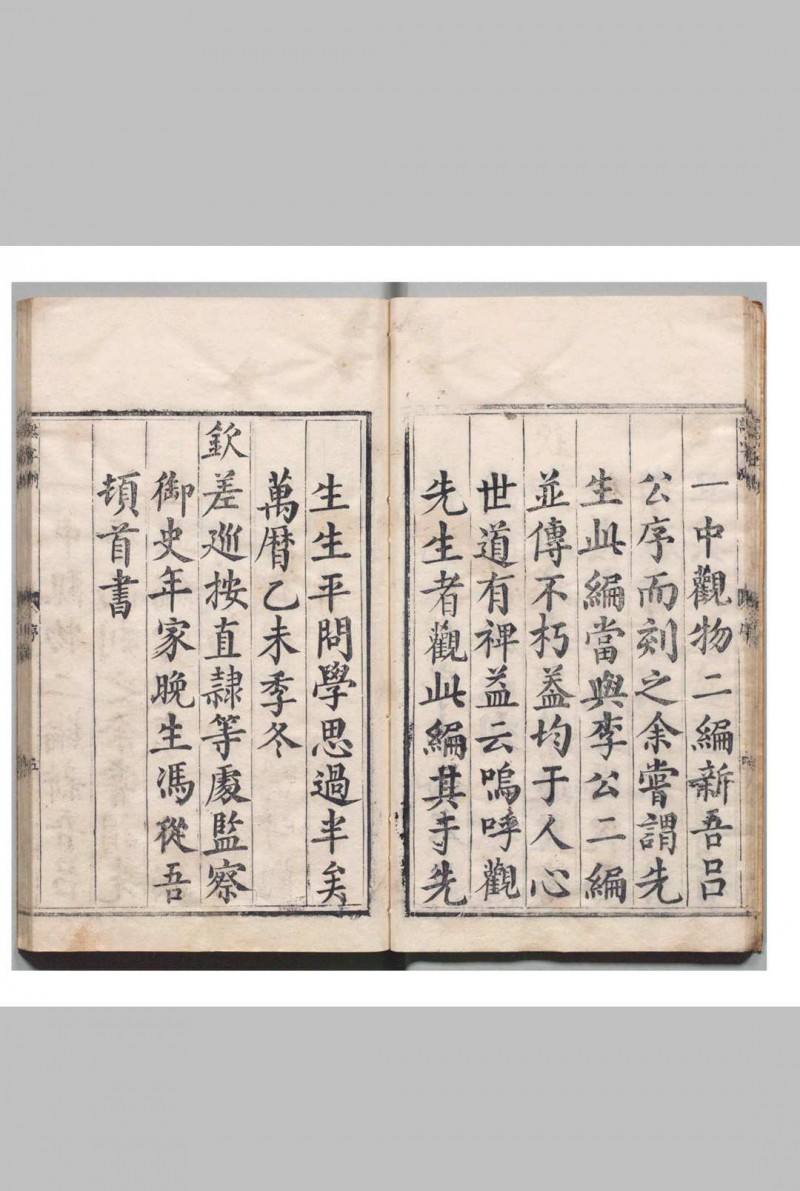 一中觀物二編新吾呂
公序而刻之余嘗謂先
生此編當與李公二編
並傳不朽葢均于人心
世道有裨益云嗚呼觀
先生者觀此編其于先
生生平問學思過半矣
萬曆乙未季冬
欽差巡按直隸等處監察
御史年家晚生馮從吾
頓首書
序
五